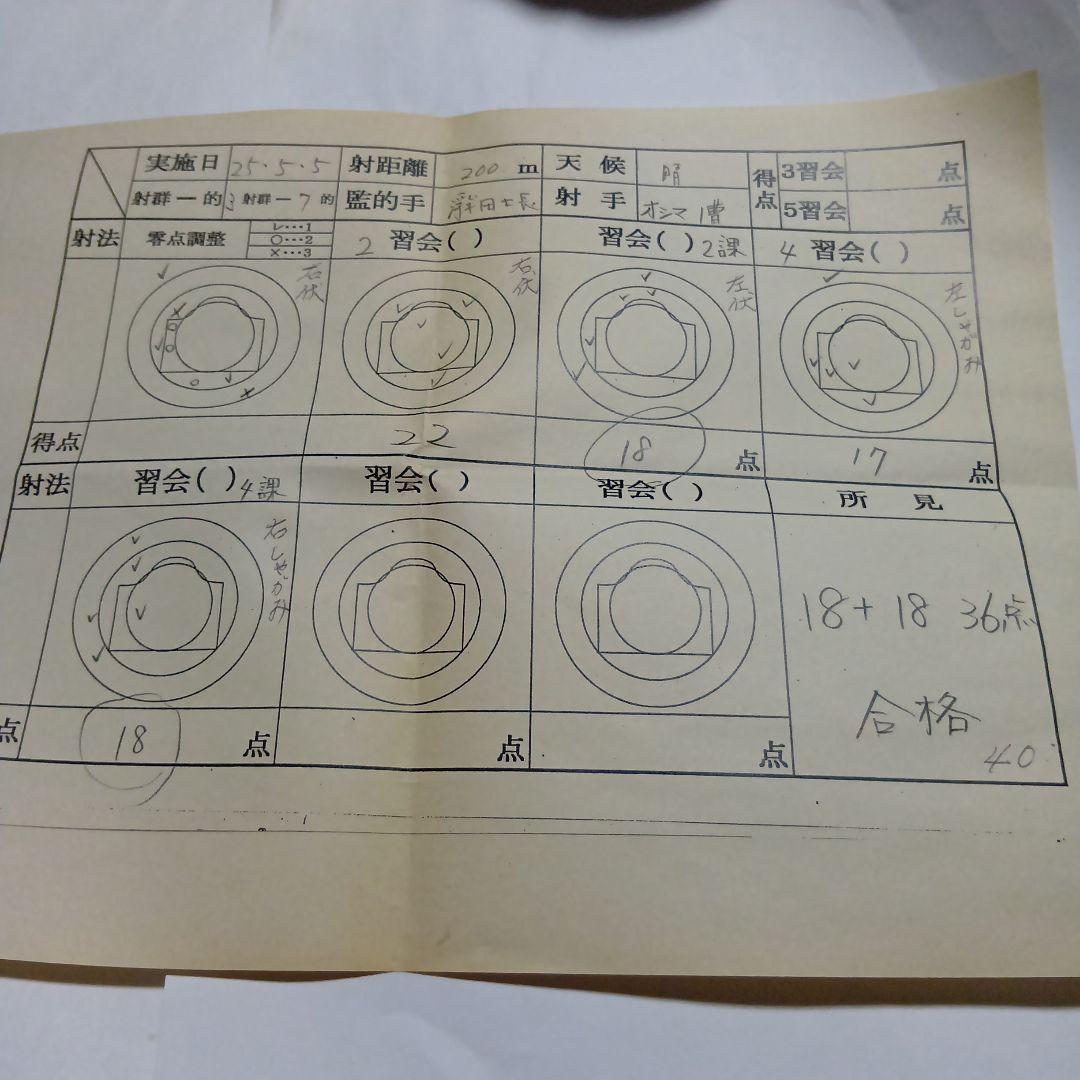 実施日 25.5.5 射距離 200 m 天候 晴 得点 3習会 点
射群ー的 3射群-7的 監的手 士長 射手 オシマ1曹 5習会 点
射法 零点調整 レ…1 ○…2 ×…3 2 習会( ) 習会( ) 2課 4 習会( )
右伏 右伏 左伏 左しゃがみ
得点 22 18 点 17 点
射法 習会( ) 4課 習会( ) 習会( ) 所見
右しゃがみ
18+18 36点
合格
40
点 18 点 点 点